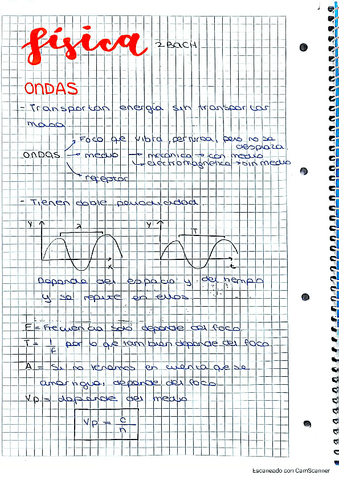 física 2 BACH
ONDAS
- Transportan energía sin transportar
masa
Foco que vibra, perturba, pero no se
desplaza.
ONDAS → medio → mecánica → con medio
→ electromagnética → sin medio
receptor
- Tienen doble periodicidad
y λ x
y T t
Depende del espacio y del tiempo
y se repite en ellos
F = Frecuencia solo depende del foco.
T = 1/f por lo que también depende del foco.
A = Si no tenemos en cuenta que se
amortigua, depende del foco.
Vp = depende del medio
Vp = c/n
Escaneado con CamScanner